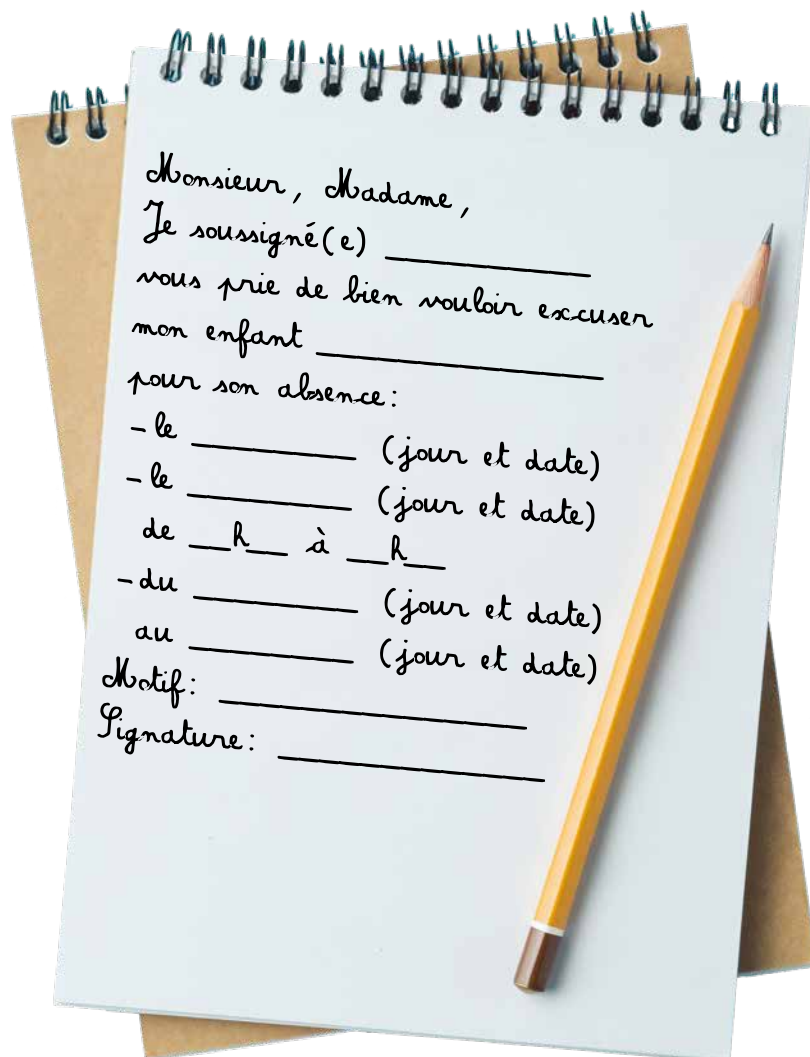 Monsieur, Madame,
Je soussigné(e) ____________
vous prie de bien vouloir excuser
mon enfant ________________
pour son absence:
- le __________ (jour et date)
- le __________ (jour et date)
de __h__ à __h__
- du __________ (jour et date)
au __________ (jour et date)
Motif: __________________
Signature: ________________